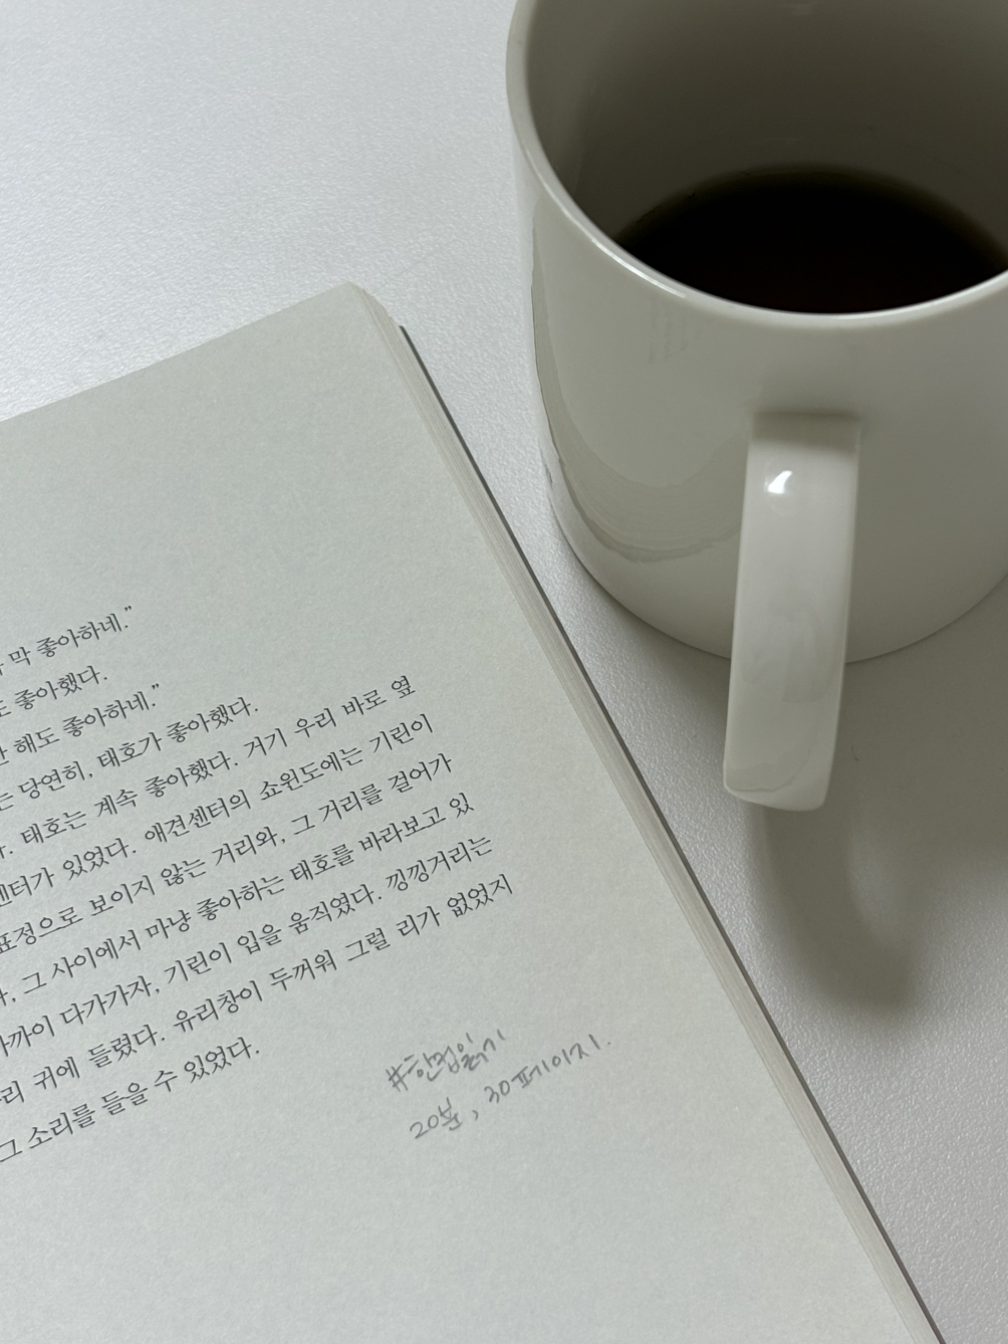 막 좋아하네.”
좋아했다.
해도 좋아하네.”
는 당연히, 태호가 좋아했다.
태호는 계속 좋아했다. 거기 우리 바로 옆
센터가 있었다. 애견센터의 쇼윈도에는 기린이
표정으로 보이지 않는 거리와, 그 거리를 걸어가
그 사이에서 마냥 좋아하는 태호를 바라보고 있
다가가자, 기린이 입을 움직였다. 낑낑거리는
귀에 들렸다. 유리창이 두꺼워 그럴 리가 없었지
그 소리를 들을 수 있었다.
#한컵읽기
20분, 30페이지.